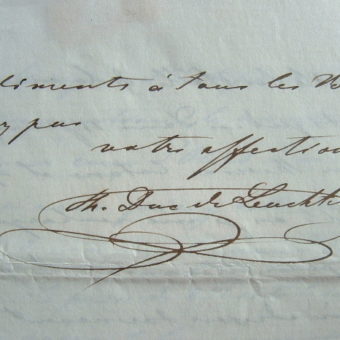 liments à tous les
z pas
votre affection
Duc de Leuchte